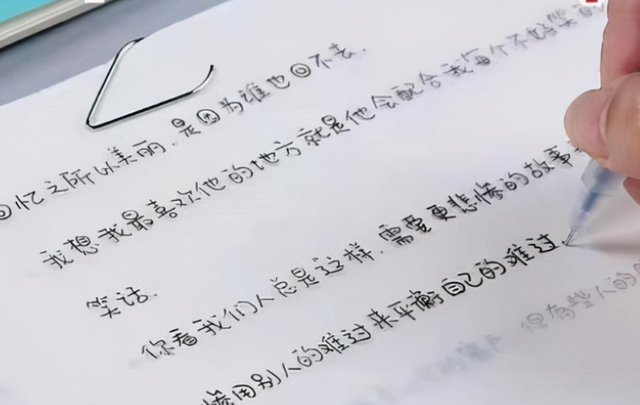 回忆之所以美丽.是因为谁也回不去.
我想我最喜欢他的地方就是他会配合我每个不好笑的
笑话.
你看我们人总是这样.需要更悲惨的故事
惨用别人的难过来平衡自己的难过.
很有些人的